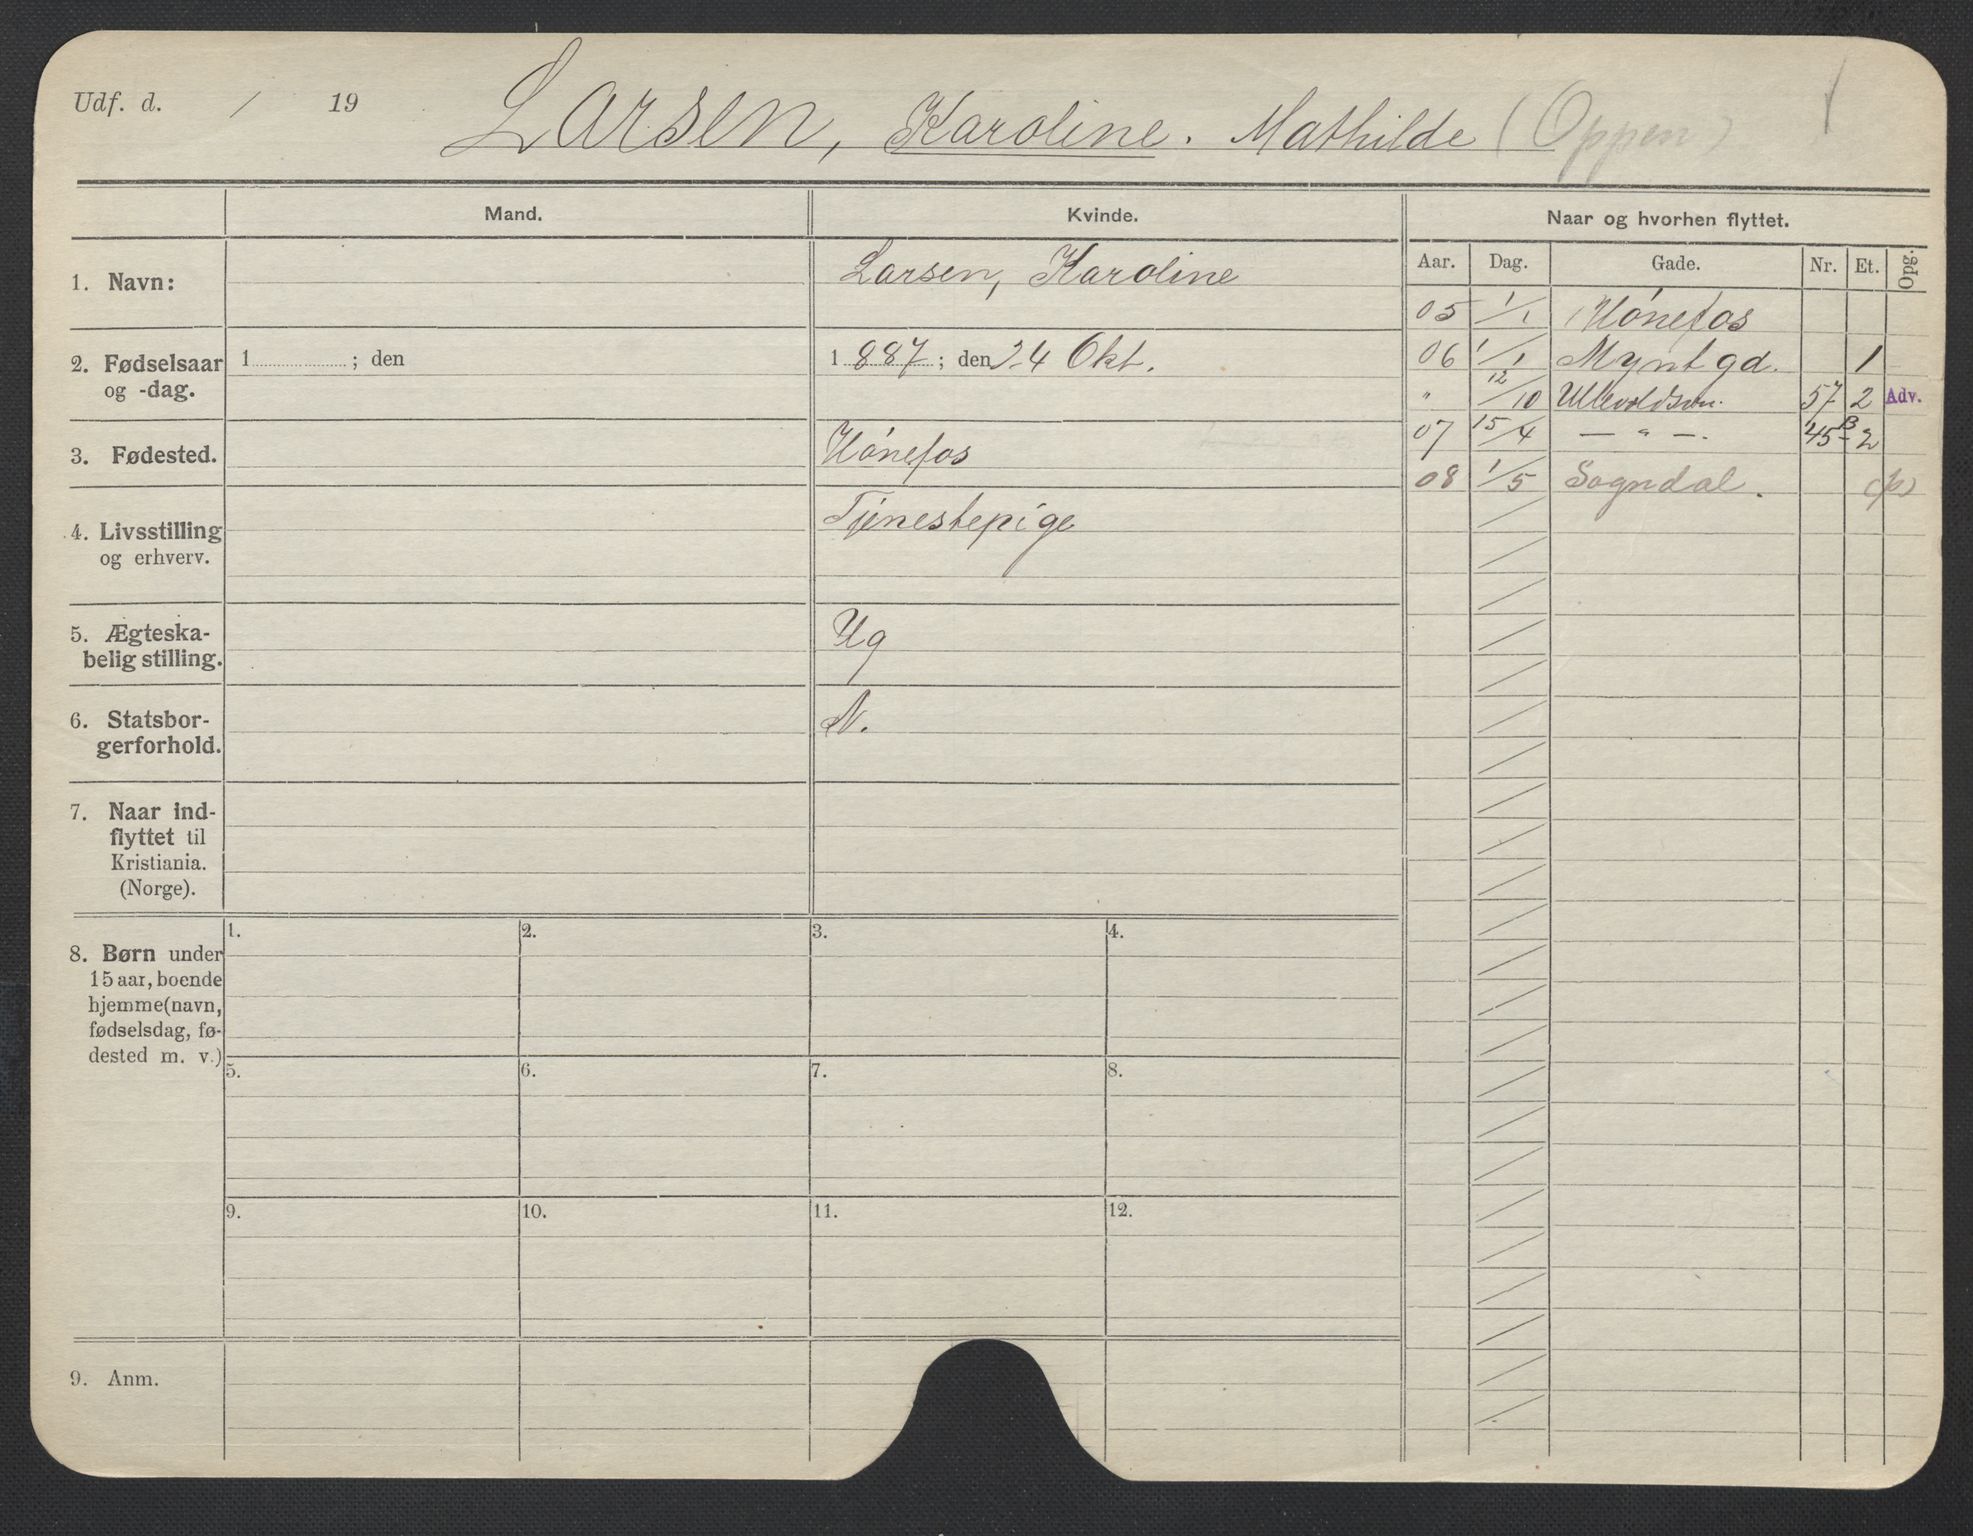 Udf. d. / 19 Larsen, Karoline. Mathilde (Oppen)
Mand. Kvinde. Naar og hvorhen flyttet.
Aar. Dag. Gade. Nr. Et. Opg.
1. Navn: Larsen, Karoline
05 1/1 Hónefos
2. Fødselsaar og -dag. 1 ; den 1887; den 24 Okt.
06 1/1 Myntgd. 1
" 12/10 Ullevoldsvn. 57 2 Adv.
3. Fødested. Hónefos
07 15/4 — " —. 45 B 2
08 1/5 Sogndal. (p)
4. Livsstilling og erhverv. Tjenestepige
5. Ægteska-
belig stilling. Ug
6. Statsbor-
gerforhold. N.
7. Naar ind-
flyttet til
Kristiania.
(Norge).
8. Børn under
15 aar, boende
hjemme (navn,
fødselsdag, fø-
dested m. v.)
1. 2. 3. 4.
5. 6. 7. 8.
9. 10. 11. 12.
9. Anm.